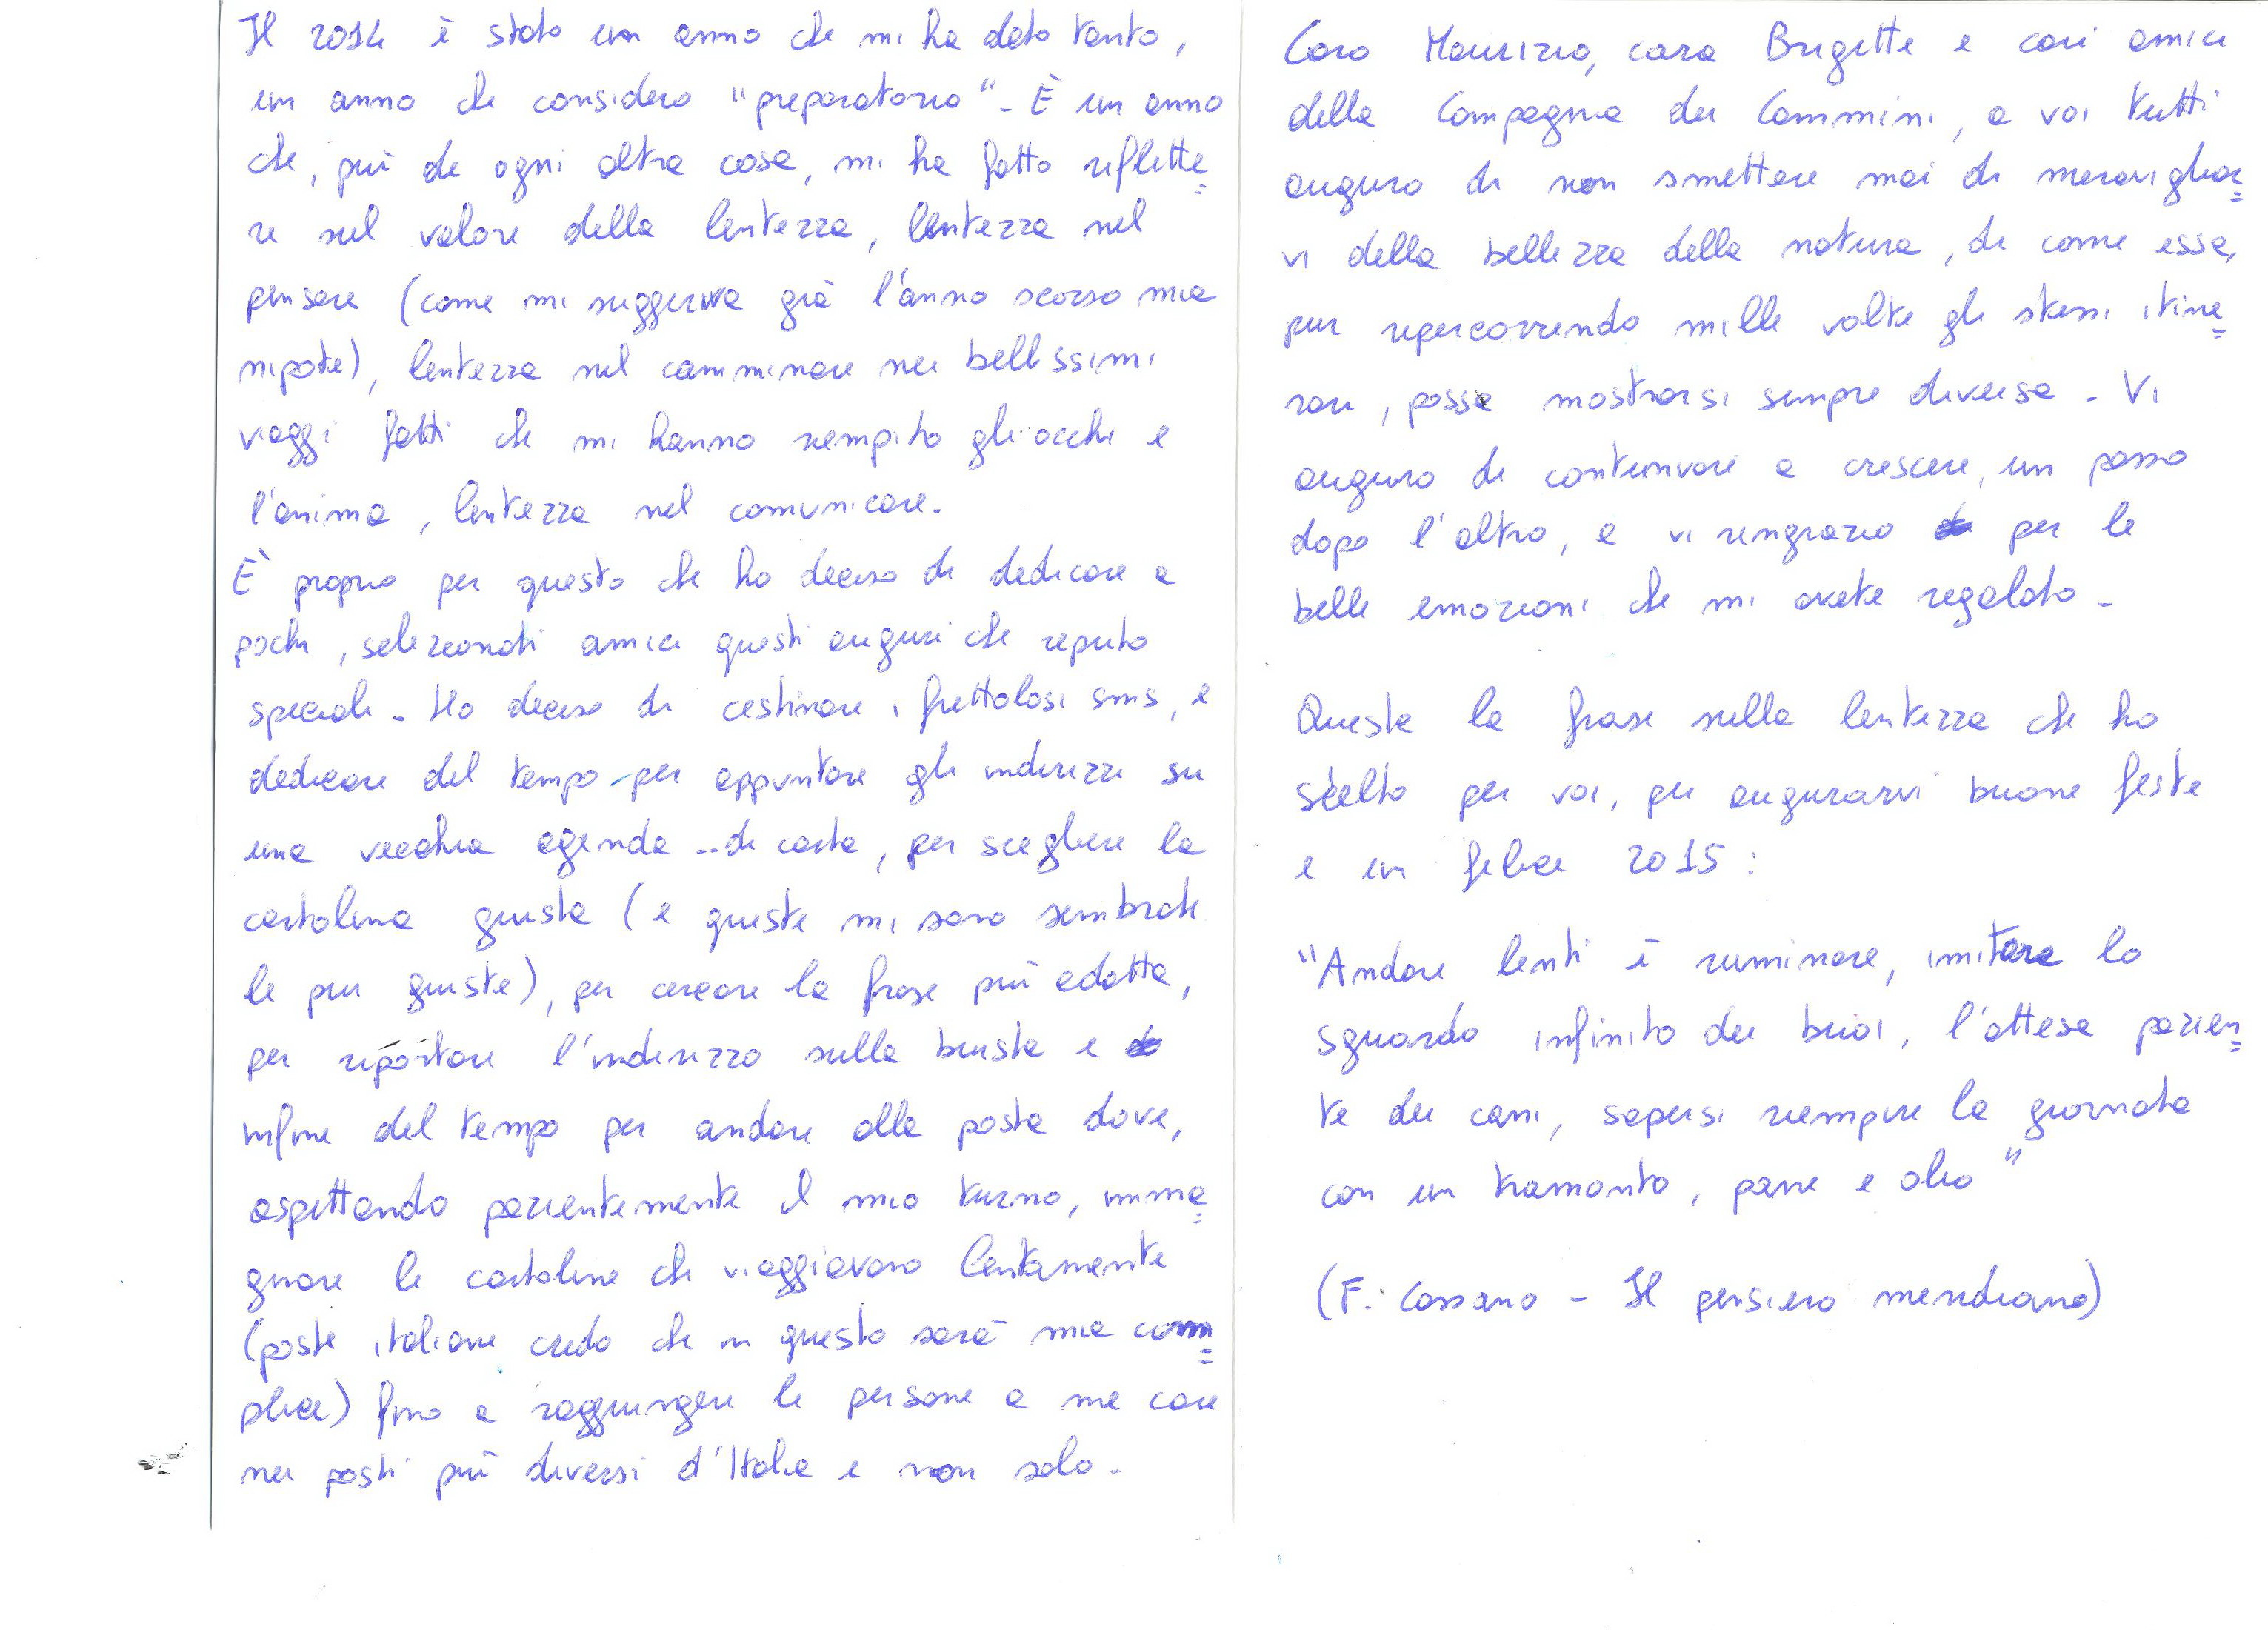 Il 2014 è stato un anno che mi ha dato tanto,
un anno che considero "preparatorio" - È un anno
che, più di ogni altra cosa, mi ha fatto riflette=
re sul valore della lentezza, lentezza nel
pensare (come mi suggeriva già l'anno scorso mia
nipote), lentezza nel camminare nei bellissimi
viaggi fatti che mi hanno riempito gli occhi e
l'anima, lentezza nel comunicare.
È proprio per questo che ho deciso di dedicare a
pochi, selezionati amici questi auguri che reputo
speciali - Ho deciso di cestinare i frettolosi sms, e
dedicare del tempo per appuntare gli indirizzi su
una vecchia agenda ..di carta, per scegliere la
cartolina giusta (e queste mi sono sembrate
le più giuste), per cercare la frase più adatta,
per riportare l'indirizzo sulla busta e
infine del tempo per andare alla posta dove,
aspettando pazientemente il mio turno, imma=
ginare le cartoline che viaggiavano lentamente
(poste italiane credo che in questo sarà mia com=
plice) fino a raggiungere le persone a me care
nei posti più diversi d'Italia e non solo -
Caro Maurizio, cara Brigitte e cari amici
della Compagnia dei Cammini, a voi tutti
auguro di non smettere mai di meravigliar=
vi della bellezza della natura, di come essa,
pur ripercorrendo mille volte gli stessi itine=
rari, possa mostrarsi sempre diversa - Vi
auguro di continuare a crescere, un passo
dopo l'altro, e vi ringrazio per le
belle emozioni che mi avete regalato -
Questa la frase sulla lentezza che ho
scelto per voi, per augurarvi buone feste
e un felice 2015:
"Andare lenti è ruminare, imitare lo
sguardo infinito dei buoi, l'attesa pazien=
te dei cani, sapersi riempire la giornata
con un tramonto, pane e olio"
(F. Cassano - Il pensiero meridiano)